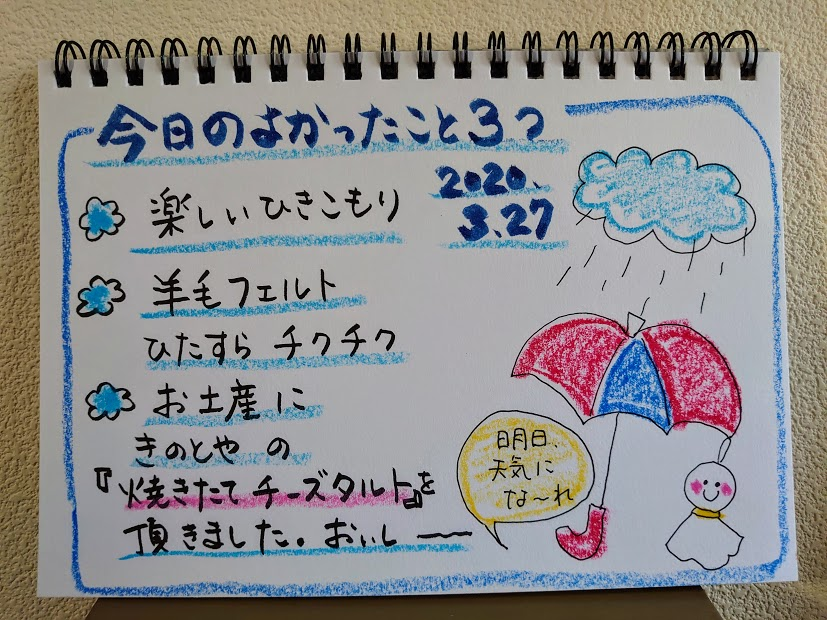 今日のよかったこと3つ
2020.
3.27
楽しいひきこもり
羊毛フェルト
ひたすら チクチク
お土産に
きのとや の
『焼きたて チーズタルト』を
頂きました。おいし〜〜
明日、
天気に
な〜れ